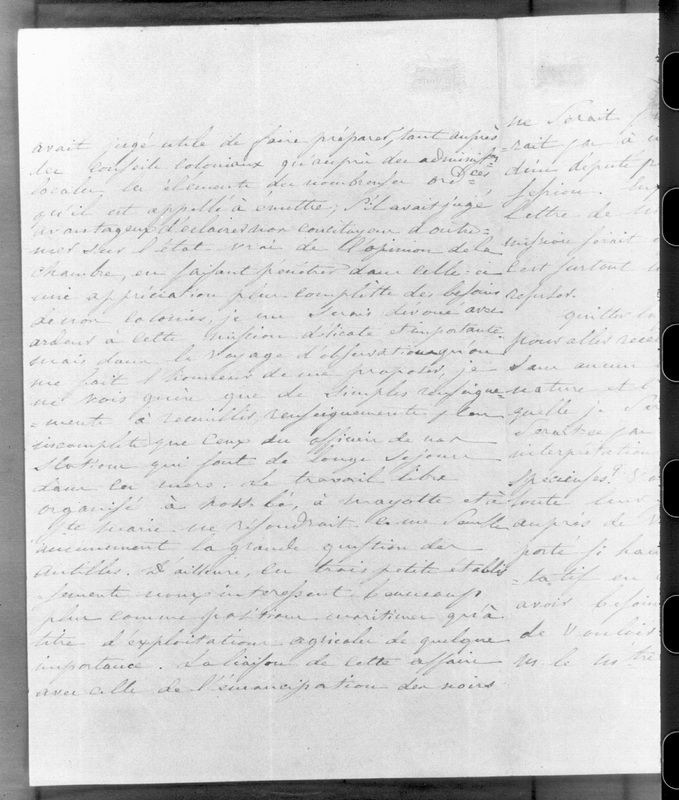 avait jugé utile de faire préparer, tant auprès
des conseils coloniaux qu'auprès des adminis.ons
locales les éléments des nombreuses ord.ces
qu'il est appellé à émettre; s'il avait jugé
avantageux d'éclairer nos constituons d'outre-
mer sur l'état vrai de l'opinion de la
chambre, en faisant pénétrer dans celle-ci
une appréciation plus complètte des besoins
de nos colonies, je me serais dévoué avec
ardeur à cette mission délicate et importante
mais dans le voyage d'observations qu'on
me fait l'honneur de me proposer, je
ne vois guère que de simples renseigne-
=ments à recueillir, renseignements plus
incomplets que ceux des officiers de nos
stations qui font de longs séjours
dans ces mers. Le travail libre
organisé à Nossi-bé, à Mayotte et à
Ste Marie ne résoudrait ce me semble
aucunement la grande question des
antilles. D'ailleurs, ces trois petits établis
sements nous intéressent beaucoup
plus comme positions maritimes qu'à
titre d'exploitations agricoles de quelque
importance. La liaison de cette affaire
avec celle de l'émancipation des noirs
ne serait
=rait pas à
d'un député
Lettre de
mission serait
c'est surtout
refuser.
quitter la
Vous allez
sans aucun
nature et
quelle je
serait-ce pas
interprétation
spécieuses?
toute
auprès de
porté si haut
=latif en
avoir besoin
de vouloir
M. le Mtre